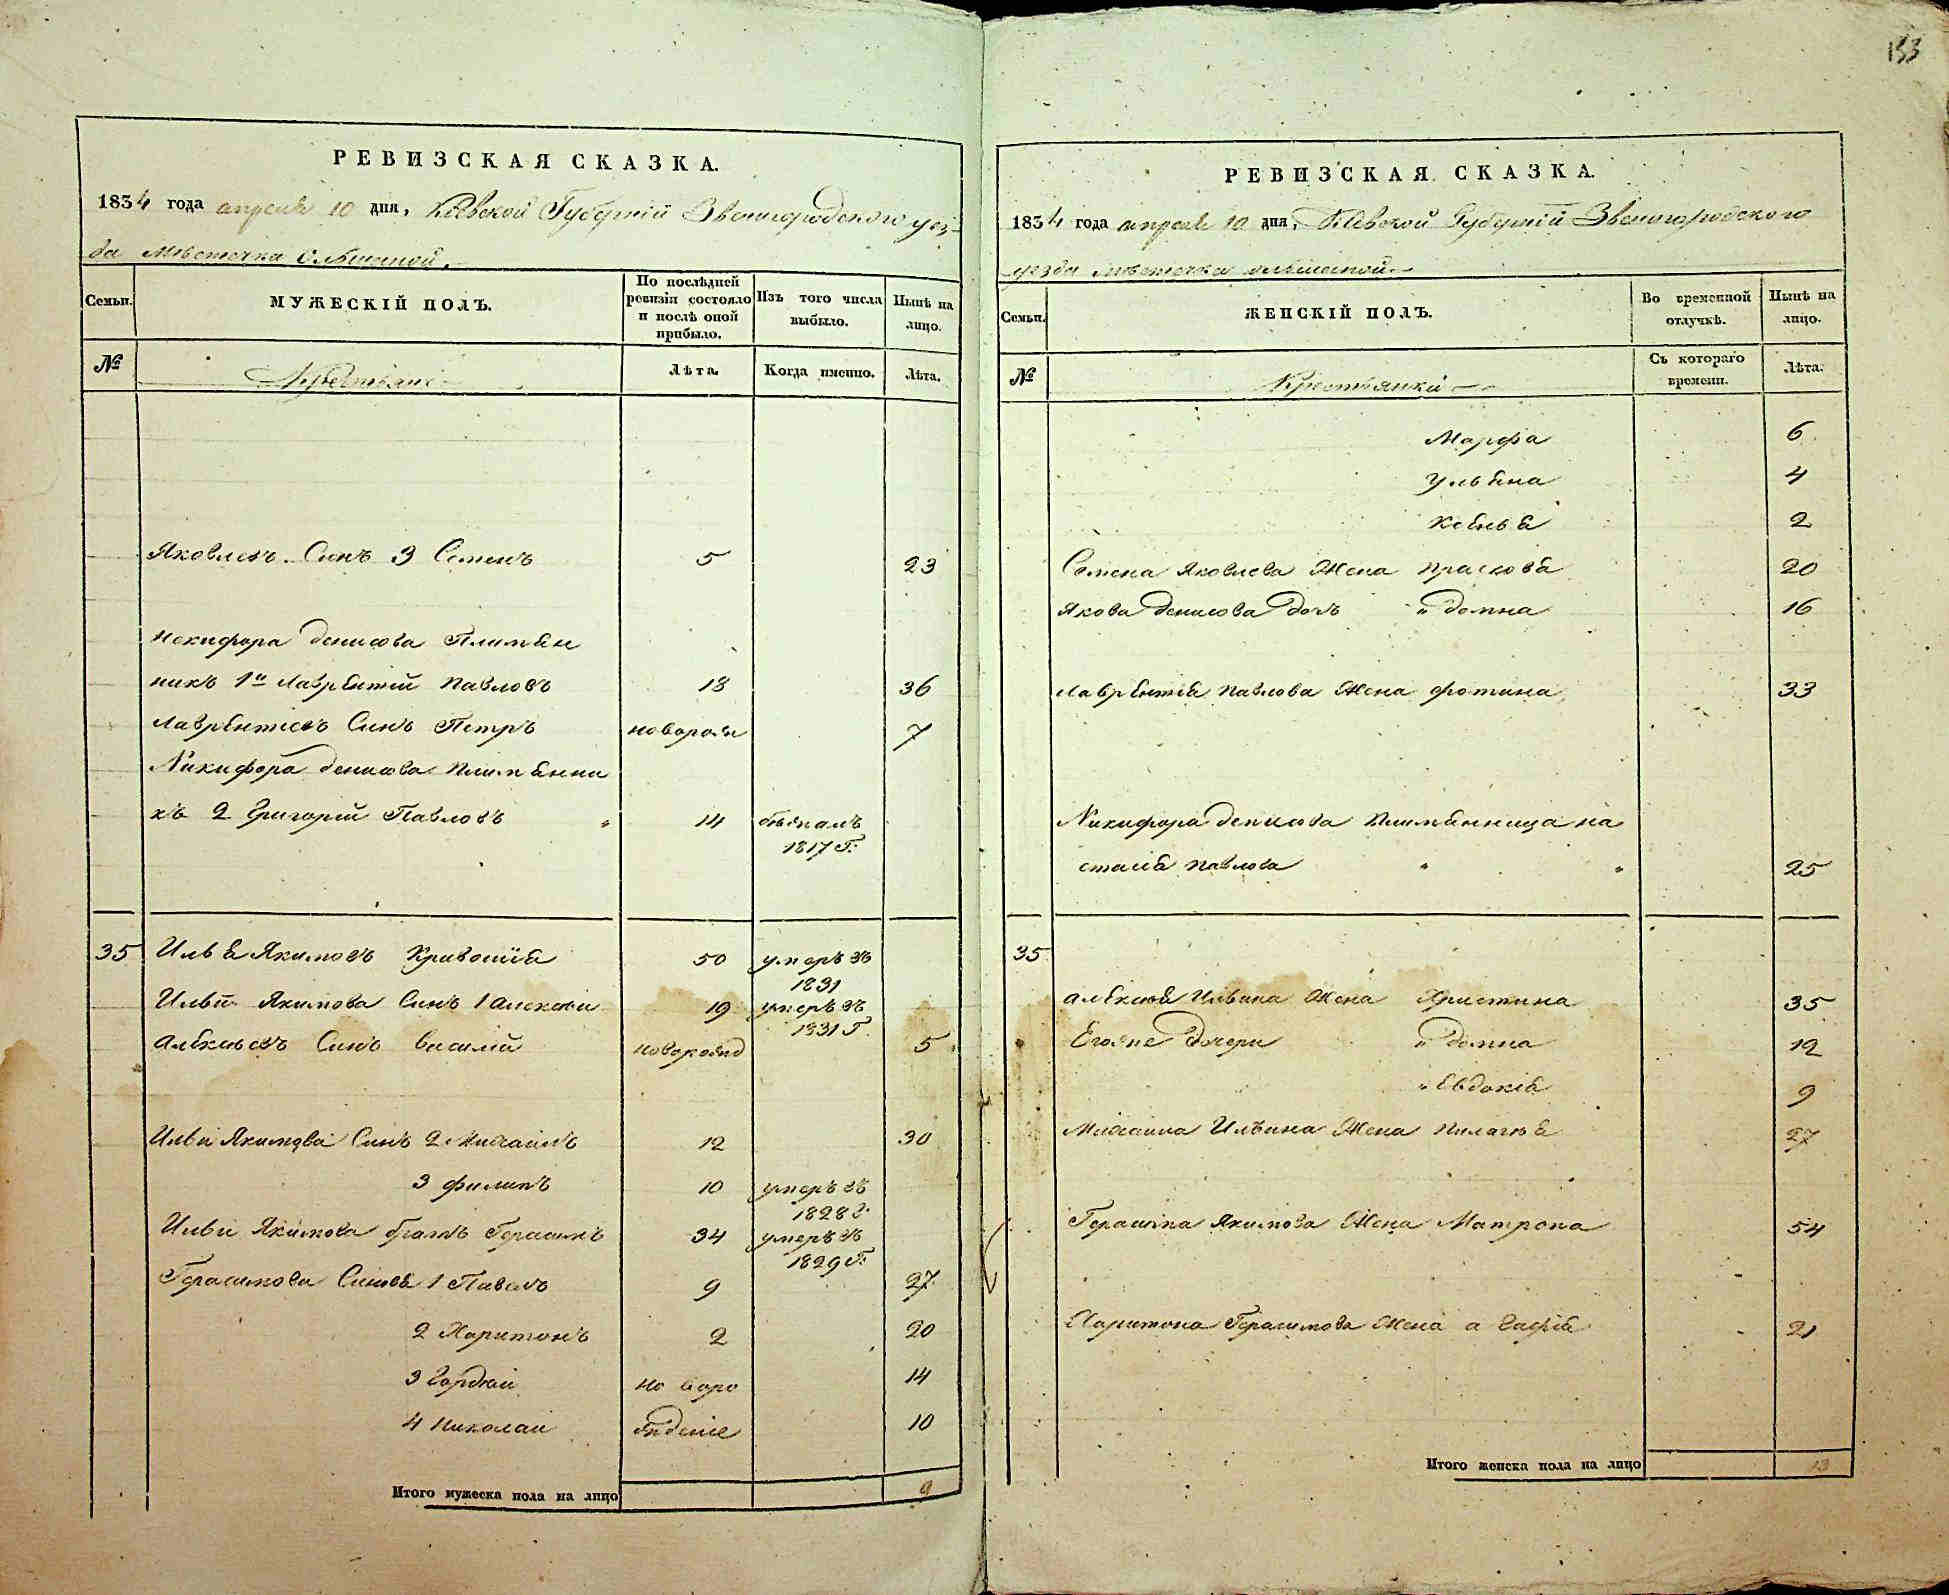 133
РЕВИЗСКАЯ СКАЗКА.
1834 года апреля 10 дня, Кіевской Губерніи Звенигородского уез-
да Мѣстечка Ольшаной.
Семьи.
МУЖЕСКІЙ ПОЛЪ.
По послѣдней ревизіи состояло и послѣ оной прибыло.
Изъ того числа выбыло.
Нынѣ на лицо.
№
Крестьяне
Лѣта.
Когда именно.
Лѣта.
Яковлевъ Синъ 3 Семенъ 5 23
Некифора Денисова Плимен
никъ 1й Лаврентій Павловъ 18 36
Лаврентіевъ Синъ Петръ новорож 7
Никифора Денисова Плименни
къ 2 Григорій Павловъ 14 бежалъ
1817 Г:
35 Илья Якимовъ Кривошія 50 умеръ въ
1831
Ильи Якимова Синъ 1 Алексей 19 умеръ въ
1831 Г
Алексеевъ Синъ Василій новорожд 5
Ильи Якимова Синъ 2 Михаилъ 12 30
3 Филипъ 10 умеръ въ
1828 г
Ильи Якимова братъ Герасимъ 34 умеръ въ
1829 Г:
Герасимова Синове 1 Павелъ 9 27
2 Харитонъ 2 20
3 Гордей но воро 14
4 Николай жденіе 10
Итого мужеска пола на лицо 9
РЕВИЗСКАЯ СКАЗКА.
1834 года апреля 10 дня, Кіевской Губерніи Звенигородского
уезда Мѣстечка Ольшаной
Семьи.
ЖЕНСКІЙ ПОЛЪ.
Во временной отлучкѣ.
Нынѣ на лицо.
№
Крестьянки
Съ котораго времени.
Лѣта.
Марфа 6
Ульяна 4
Ксенья 2
Семена Яковлева Жена Прасковя 20
Якова Денисова дочь " Домна 16
Лаврентія Павлова Жена Фотина 33
Никифора Денисова Плименница На
стасія Павлова 25
35
Алексея Ильина Жена Христина 35
Егожне Дочери " Домна 12
" Евдокія 9
Михаила Ильина Жена Пилагея 27
Герасима Якимова Жена Матрона 54
Харитона Герасимова Жена Агафія 21
Итого женска пола на лицо 13